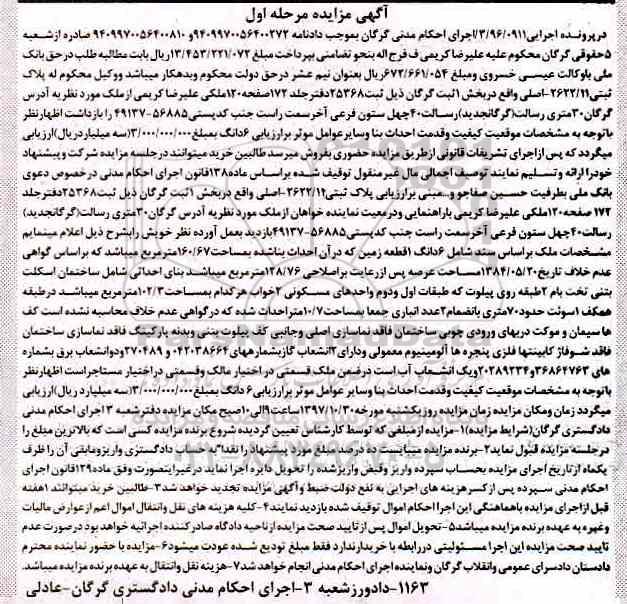 آگهی مزایده مرحله اول
در پرونده اجرایی ۳/۹۶/۰۹۱۱/اجرای احکام مدنی گرگان بموجب دادنامه ۹۴۰۹۹۷۰۰۵۶۴۰۰۲۷۲ و ۹۴۰۹۹۷۰۰۵۶۴۰۰۸۱۰ صادره از شعبه
۵حقوقی گرگان محکوم علیه علیرضا کریمی ف فرج اله بنحو تضامنی بپرداخت مبلغ ۱۳/۴۵۳/۲۲۱/۰۷۲ریال بابت مطالبه طلب در حق بانک
ملی باوکالت عیسی خسروی ومبلغ ۶۷۲/۶۶۱/۰۵۴ریال بعنوان نیم عشر در حق دولت محکوم وبدهکار میباشد ووکیل محکوم له پلاک
ثبتی۲۶۲۲/۱۱-اصلی واقع دربخش ۱ثبت گرگان ذیل ثبت۲۵۳۶۸دفترجلد ۱۷۲صفحه۱۲۰ملکی علیرضا کریمی ازملک مورد نظریه آدرس
گرگان۳۰متری رسالت(گرگانجدید)رسالت۴۰چهل ستون فرعی آخرسمت راست جنب کدپستی۵۶۸۸۵-۴۹۱۳۷ را بازداشت اظهارنظر
باتوجه به مشخصات موقعیت کیفیت وقدمت احداث بنا وسایرعوامل موثر برارزیابی ۶دانگ بمبلغ۳/۰۰۰/۰۰۰/۰۰۰(سه میلیاردریال)ارزیابی
میگردد که پس ازاجرای تشریفات قانونی ازطریق مزایده حضوری بفروش میرسد طالبین خرید میتوانند درجلسه مزایده شرکت و پیشنهاد
خودرا ارائه وتسلیم نمایند توصیف اجمالی مال غیرمنقول توقیف شده براساس ماده۱۳۸قانون اجرای احکام مدنی درخصوص دعوی
بانک ملی بطرفیت حسین صفاجو و..مبنی برارزیابی پلاک ثبتی۲۶۲۲/۱۱-اصلی واقع دربخش ۱ثبت گرگان ذیل ثبت۲۵۳۶۸دفترجلد
۱۷۲ صفحه۱۲۰ملکی علیرضا کریمی باراهنمایی ودرمعیت نماینده خواهان ازملک مورد نظریه آدرس گرگان۳۰متری رسالت(گرگانجدید)
رسالت۴۰چهل ستون فرعی آخرسمت راست جنب کدپستی۵۶۸۸۵-۴۹۱۳۷بازدید بعمل آورده نظر خویش رابشرح ذیل اعلام مینمایم
مشخصات ملک براساس سند شامل ۶دانگ ۱قطعه زمین که درآن احداث بناشده بمساحت۱۶۰/۶۷مترمربع میباشد که براساس گواهی
عدم خلاف تاریخ۱۳۸۴/۰۵/۲۰مساحت عرصه پس ازرعایت براصلاحی ۱۲۸/۷۶مترمربع میباشد بنای احداثی شامل ساختمان اسکلت
بتنی تخت بام ۲طبقه روی پیلوت که طبقات اول ودوم واحدهای مسکونی ۲خوابه هرکدام بمساحت۱۰۲/۳مترمربع میباشد درطبقه
همکف ۱سوئت حدود۷۰متری بانضمام۲عدد انباری جمعا بمساحت۱۰/۷متراحداث شده که درگواهی عدم خلاف محاسبه نشده است کف
ها سیمان و موکت دربهای ورودی چوبی ساختمان فاقد نماسازی اصلی وجانبی کف پیلوت بتنی وبدنه پارکینگ فاقد نماسازی ساختمان
فاقد شوفاژ کابینتها فلزی پنجره ها آلومینیوم معمولی ودارای۲انشعاب گازبشماره های ۰۴۲۰۳۸۶۶۴ و ۲۷۰۴۸۹ودوانشعاب برق بشماره
های ۳۶۸۶۴۷۶۳و ۲۰۲۸۹۲۳۴ویک انشعاب آب است درضمن ملک قسمتی در اختیار مالک وقسمتی دراختیار مستاجراست اظهارنظر
باتوجه به مشخصات موقعیت کیفیت وقدمت احداث بنا وسایر عوامل موثر برارزیابی۶ دانگ بمبلغ۳/۰۰۰/۰۰۰/۰۰۰(سه میلیارد ریال)ارزیابی
میگردد زمان ومکان مزایده زمان مزایده روزیکشنبه مورخه۱۳۹۷/۱۰/۳۰ساعت۹الی۱۰صبح مکان مزایده دفترشعبه ۳اجرای احکام مدنی
دادگستری گرگان(شرایط مزایده)۱-مزایده ازمبلغی که توسط کارشناس تعیین گردیده شروع برنده مزایده کسی است که بالاترین مبلغ را
درجلسه مزایده قبول نماید۲-برنده مزایده میبایست ده درصد مبلغ مورد پیشنهاد را نقدا"به حساب دادگستری واریزومابقی آن را ظرف
یکماه ازتاریخ اجرای مزایده بحساب سپرده واریز وقبض واریزشده را تحویل دایره اجرا نماید درغیراینصورت وفق ماده۱۲۹قانون اجرای
احکام مدنی سپرده پس از کسرهزینه های اجرایی به نفع دولت ضبط و آگهی مزایده تجدید خواهد شد۳-طالبین خرید میتوانند ۱هفته
قبل ازاجرای مزایده باهماهنگی این اجرا اموال توقیف شده بازدید نمایند۴-کلیه هزینه های نقل وانتقال اموال اعم ازعوارض مالیات
وغیره به عهده برنده مزایده میباشد۵-تحویل اموال پس از تایید صحت مزایده ازناحیه دادگاه صادرکننده اجرائیه خواهد بود درصورت عدم
تایید صحت مزایده این اجرا مسئولیتی دررابطه با خریدارندارد فقط مبلغ تودیع شده عودت میشود۶-مزایده با حضور نماینده محترم
دادستان دادسرای عمومی وانقلاب گرگان ونماینده اجرای احکام مدنی انجام خواهد شد۷-هزینه نقل وانتقال به عهده برنده مزایده میباشد.
۱۱۶۳-دادورزشعبه ۳-اجرای احکام مدنی دادگستری گرگان-عادلی